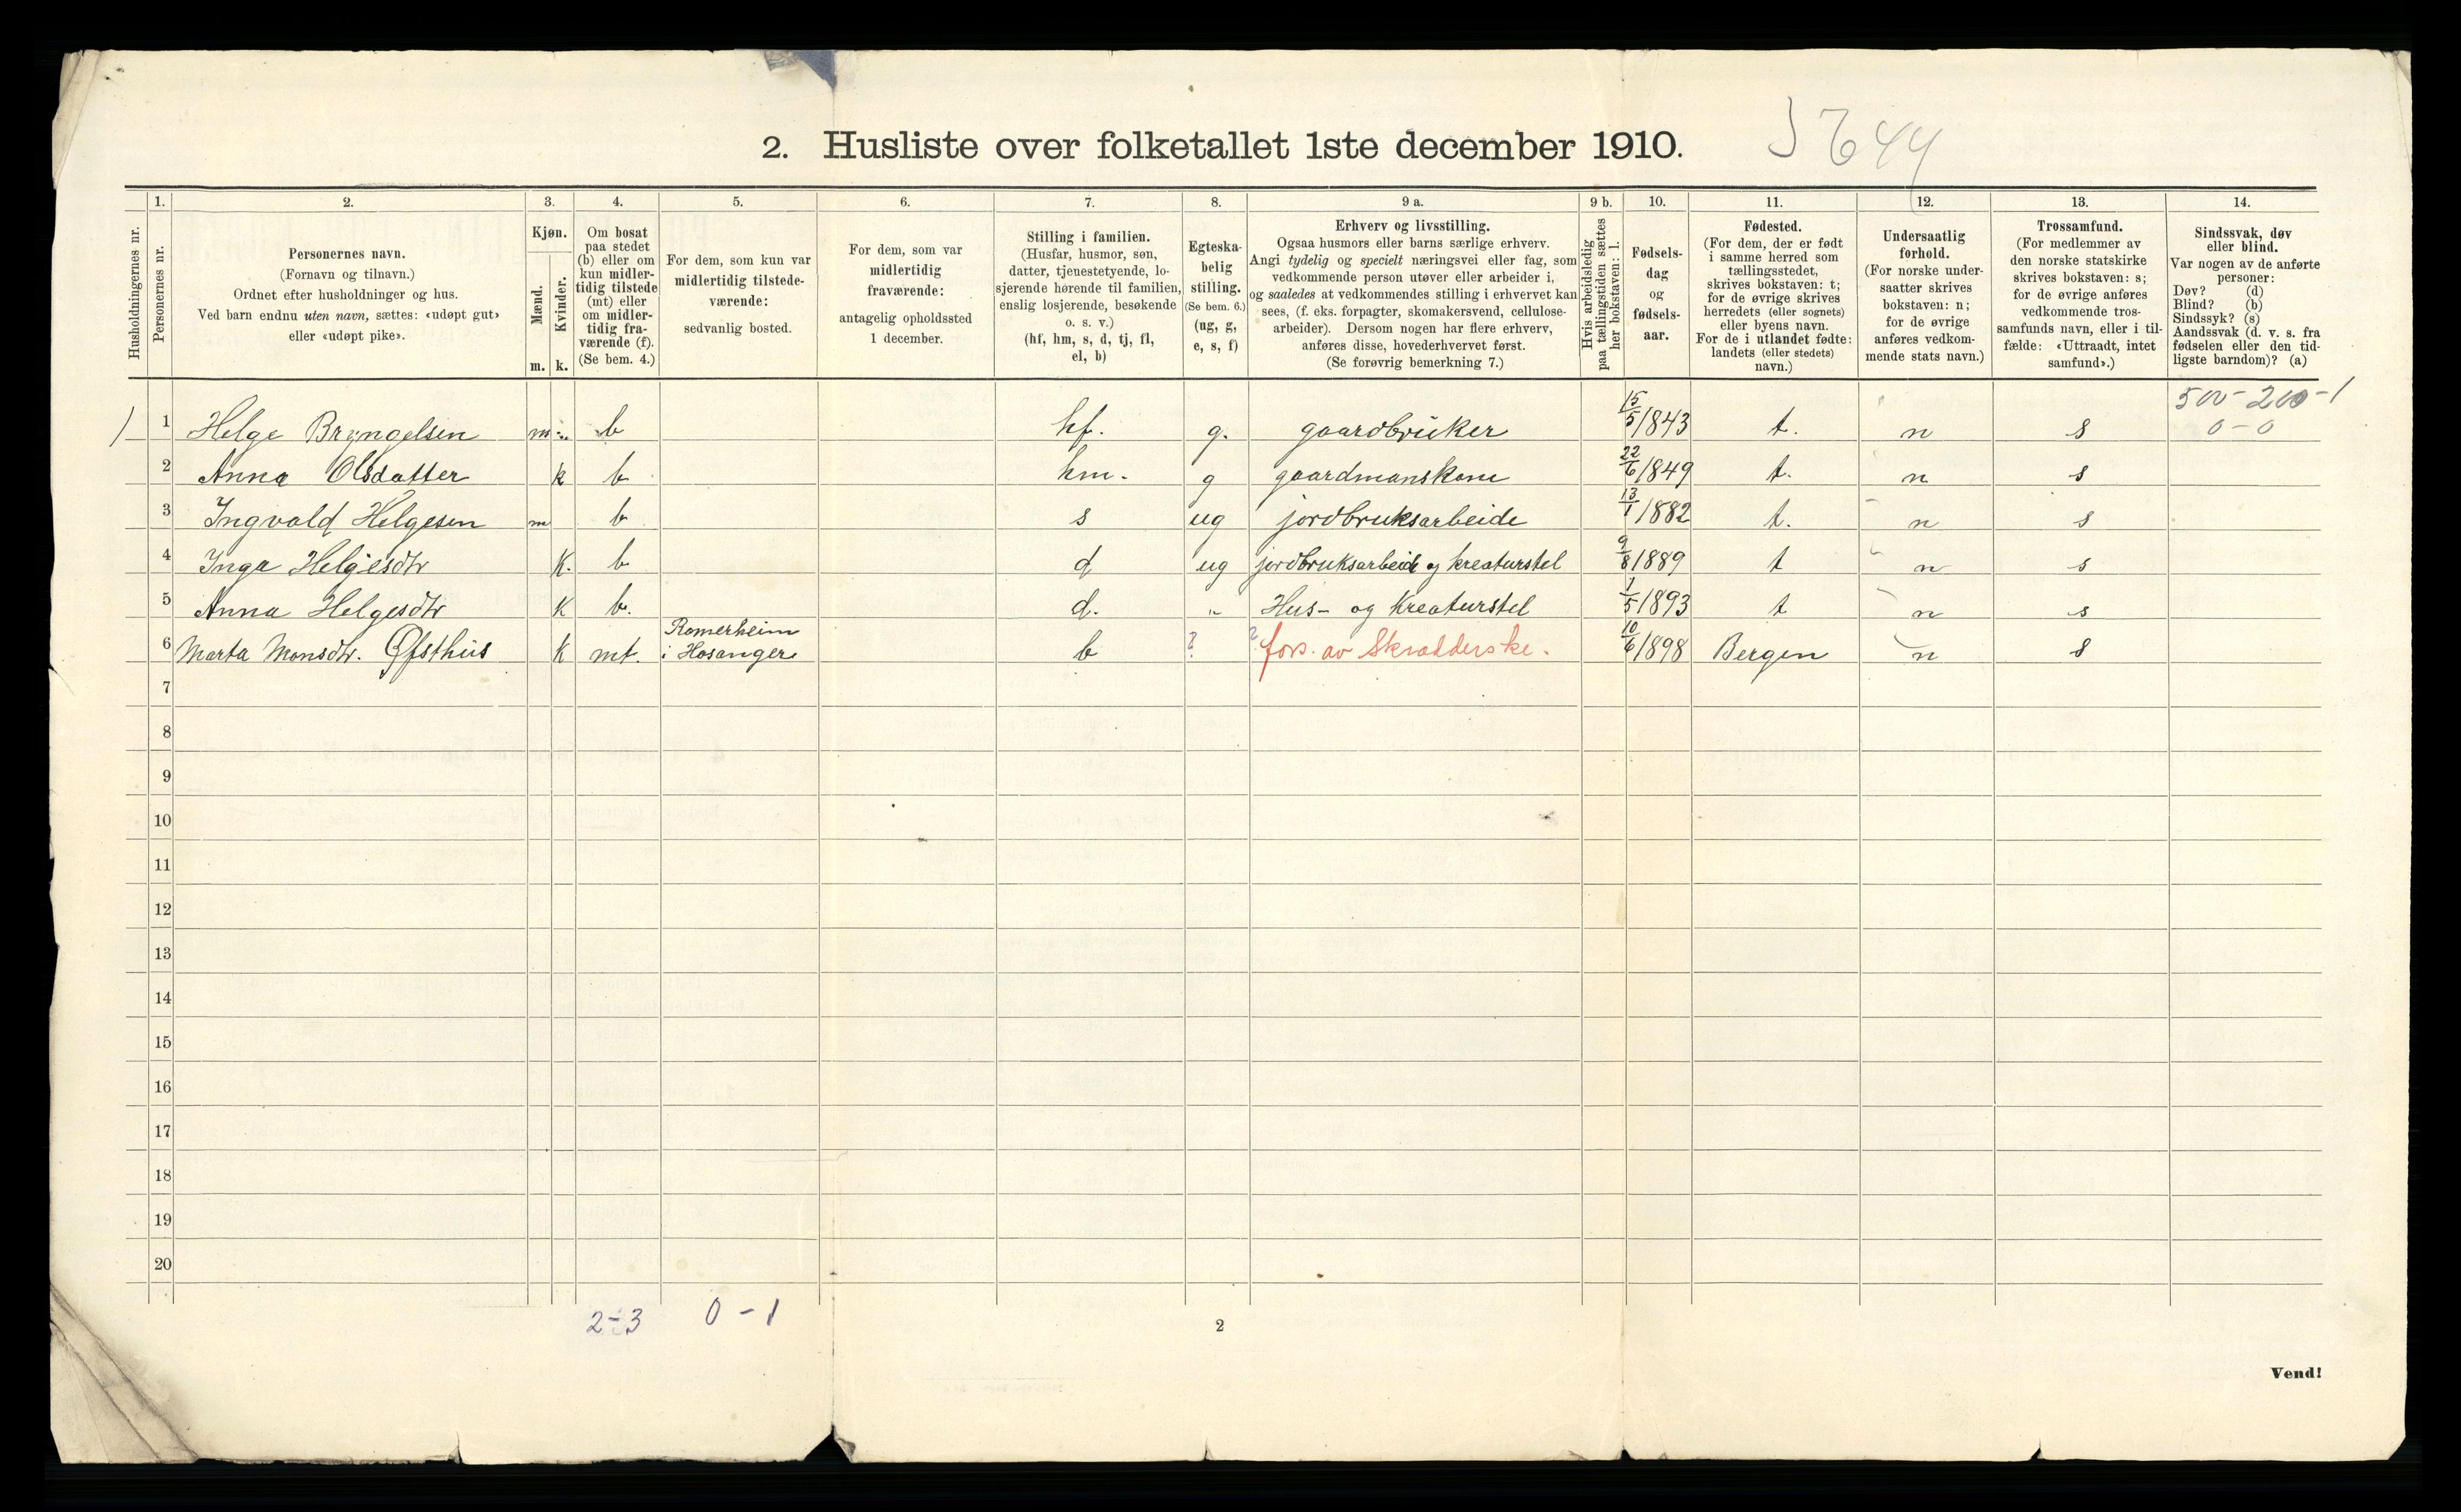 2. Husliste over folketallet 1ste december 1910.
Husholdningernes nr.
1. Personernes nr.
2. Personernes navn.
(Fornavn og tilnavn.)
Ordnet efter husholdninger og hus.
Ved barn endnu uten navn, sættes: «udøpt gut»
eller «udøpt pike».
3. Kjøn.
Mænd. m.
Kvinder. k.
4. Om bosat
paa stedet
(b) eller om
kun midler-
tidig tilstede
(mt) eller
om midler-
tidig fra-
værende (f).
(Se bem. 4.)
5. For dem, som kun var
midlertidig tilstede-
værende:
sedvanlig bosted.
6. For dem, som var
midlertidig
fraværende:
antagelig opholdssted
1 december.
7. Stilling i familien.
(Husfar, husmor, søn,
datter, tjenestetyende, lo-
sjerende hørende til familien,
enslig losjerende, besøkende
o. s. v.)
(hf, hm, s, d, tj, fl,
el, b)
8. Egteska-
belig
stilling.
(Se bem. 6.)
(ug, g,
e, s, f)
9 a. Erhverv og livsstilling.
Ogsaa husmors eller barns særlige erhverv.
Angi tydelig og specielt næringsvei eller fag, som
vedkommende person utøver eller arbeider i,
og saaledes at vedkommendes stilling i erhvervet kan
sees, (f. eks. forpagter, skomakersvend, cellulose-
arbeider). Dersom nogen har flere erhverv,
anføres disse, hovederhvervet først.
(Se forøvrig bemerkning 7.)
9 b. Hvis arbeidsledig
paa tællingstiden sættes
her bokstaven: l.
10. Fødsels-
dag
og
fødsels-
aar.
11. Fødested.
(For dem, der er født
i samme herred som
tællingsstedet,
skrives bokstaven: t;
for de øvrige skrives
herredets (eller sognets)
eller byens navn.
For de i utlandet fødte:
landets (eller stedets)
navn.)
12. Undersaatlig
forhold.
(For norske under-
saatter skrives
bokstaven: n;
for de øvrige
anføres vedkom-
mende stats navn.)
13. Trossamfund.
(For medlemmer av
den norske statskirke
skrives bokstaven: s;
for de øvrige anføres
vedkommende tros-
samfunds navn, eller i til-
fælde: «Uttraadt, intet
samfund».)
14. Sindssvak, døv
eller blind.
Var nogen av de anførte
personer:
Døv? (d)
Blind? (b)
Sindssyk? (s)
Aandssvak (d. v. s. fra
fødselen eller den tid-
ligste barndom)? (a)
500-200-1
0-0
1 Helge Bryngelsen m b hf. g. gaardbruker 15/5 1843 t. n s
2 Anna Olsdatter k b hm. g gaardmanskone 22/6 1849 t. n s
3 Ingvald Helgesen m b s ug jordbruksarbeide 13/1 1882 t. n s
4 Inga Helgesdtr K. b d ug jordbruksarbeide og kreaturstel 9/8 1889 t n s
5 Anna Helgesdtr K b. d. " Hus- og kreaturstel 1/5 1893 t n s
6 Marta Monsdtr. Øfsthus K mt. Romerheim i Hosanger b ? ? fors. av Skrædderske. 10/6 1898 Bergen n s
7
8
9
10
11
12
13
14
15
16
17
18
19
20
2-3 0-1
2
Vend!